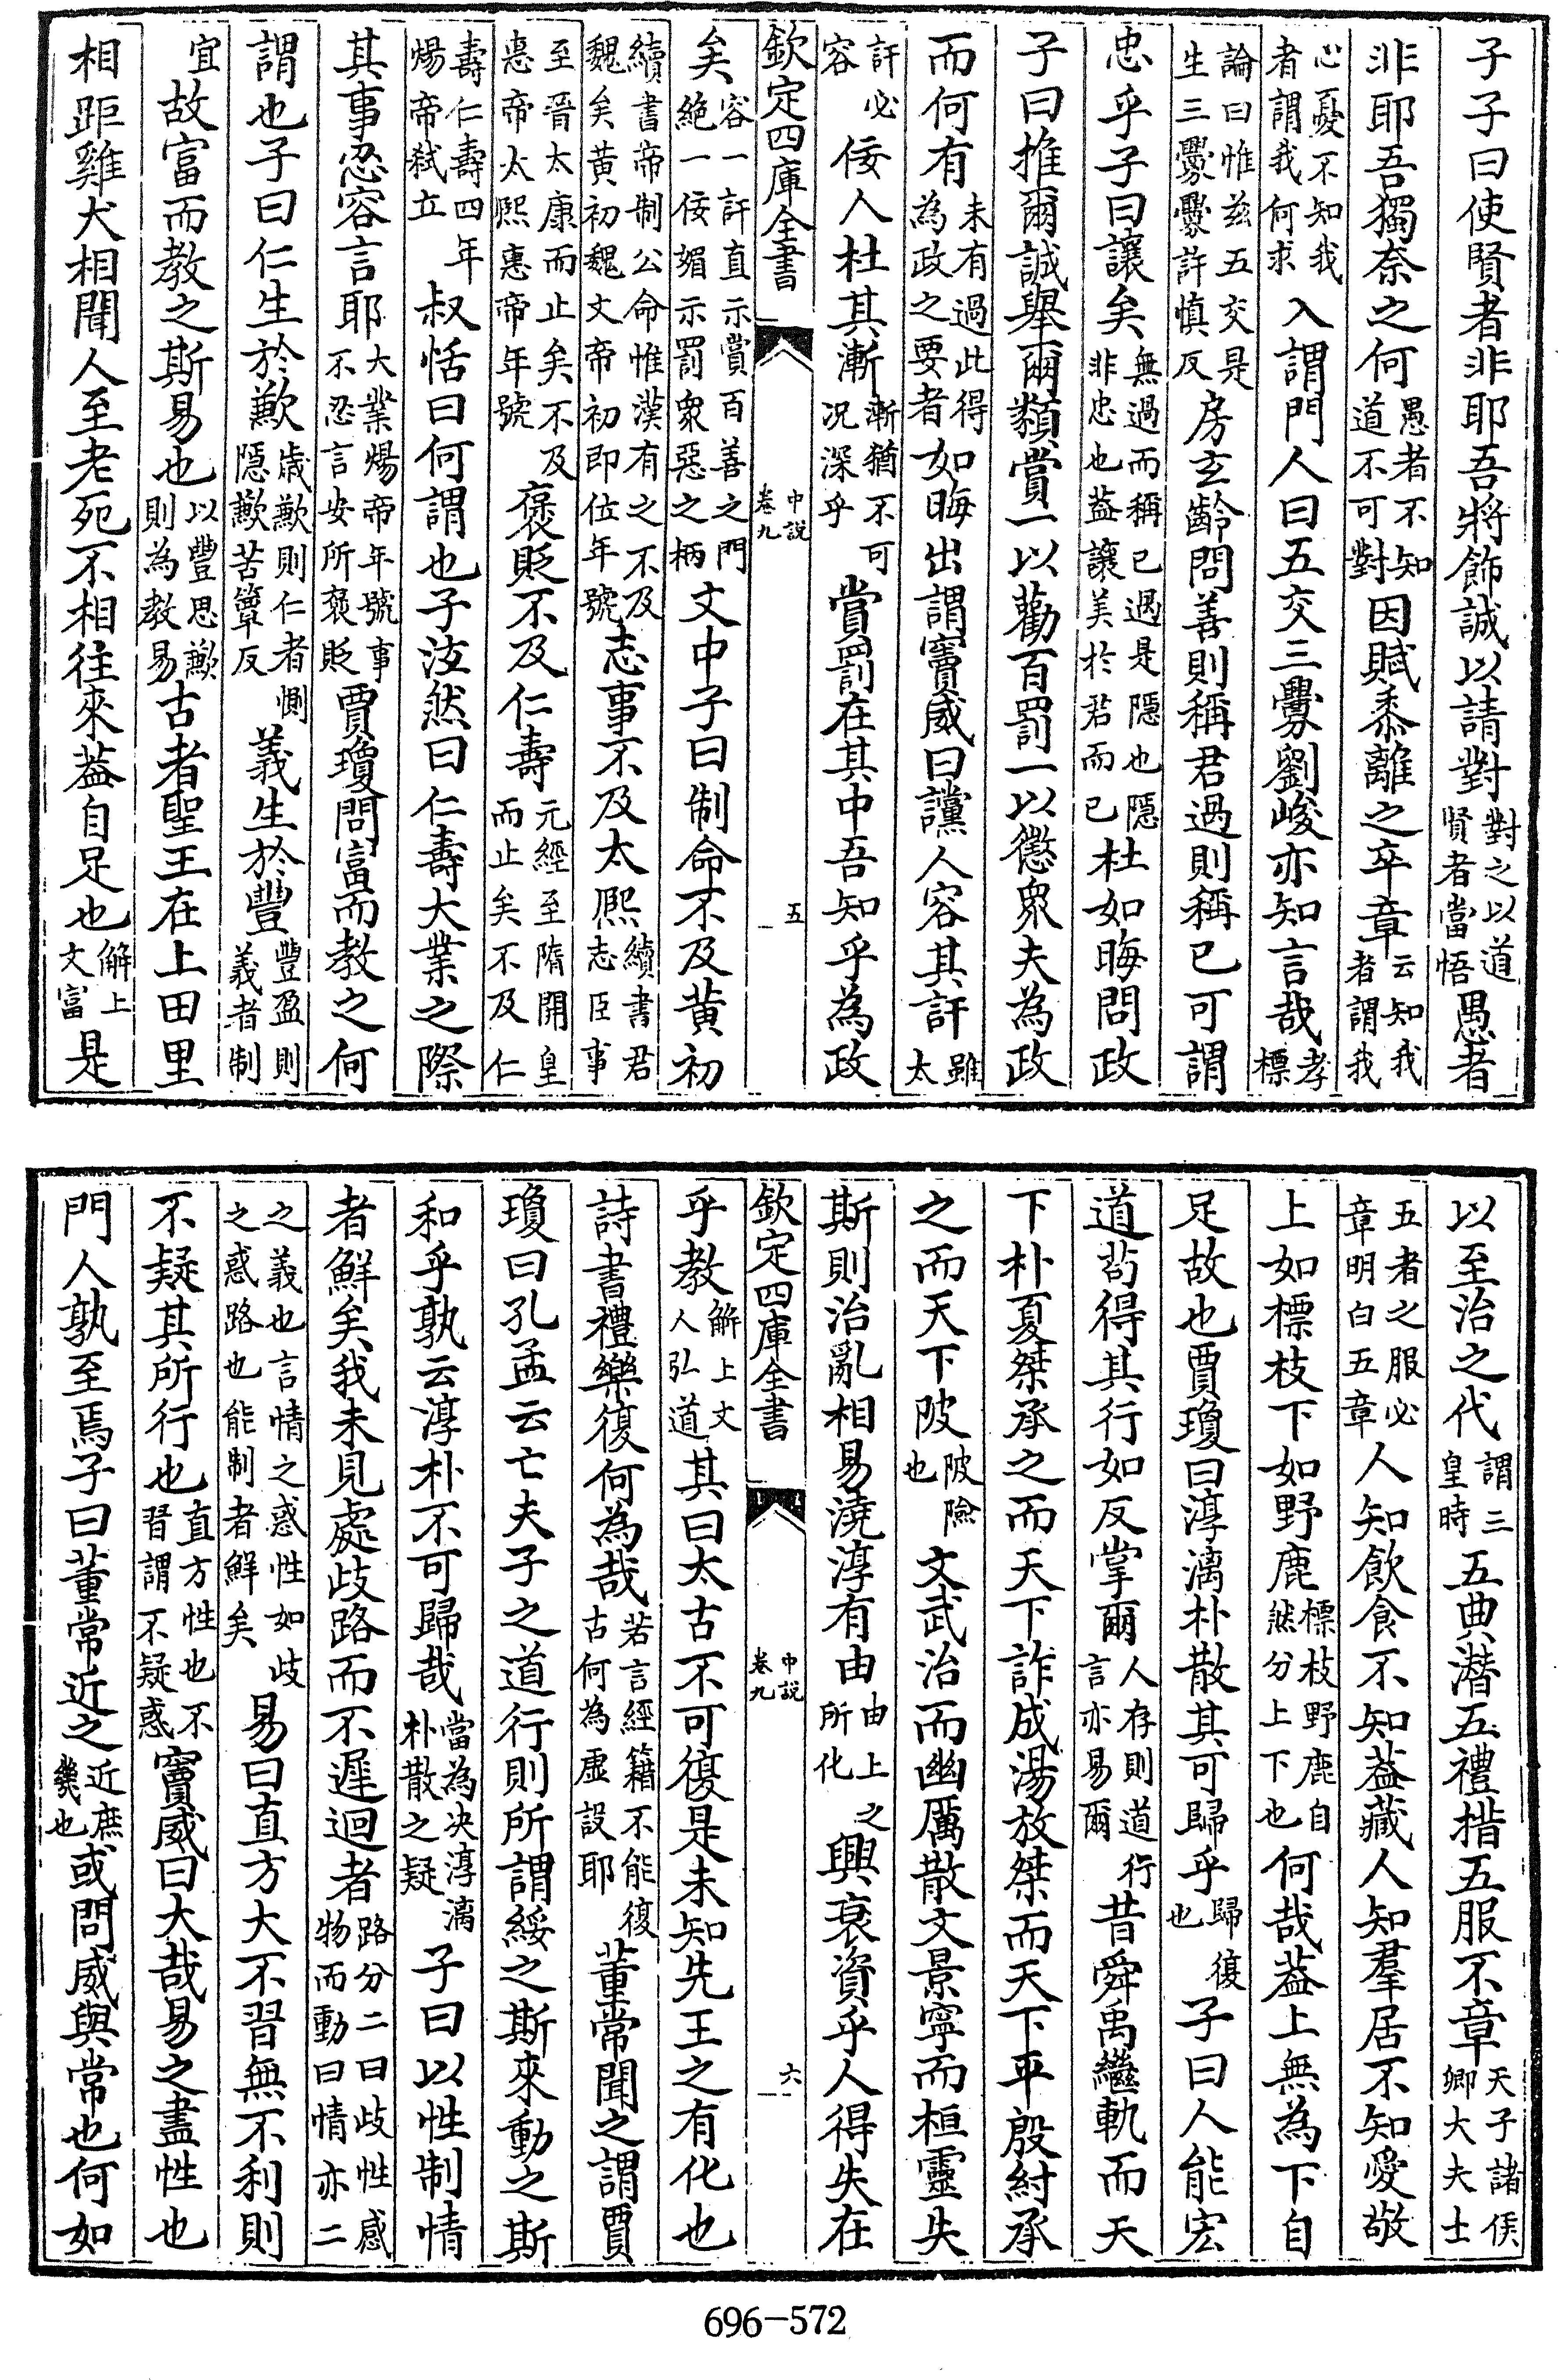 子子曰使賢者非耶吾將飾誠以請對對之以道賢者當悟愚者
非耶吾獨奈之何愚者不知道不可對因賦黍離之卒章云知我者謂我
心憂不知我者謂我何求入謂門人曰五交三釁劉峻亦知言哉孝標
論曰惟茲五交是生三釁釁許慎反房玄齡問善則稱君過則稱已可謂
忠乎子曰讓矣無過而稱已過是隱也隱非忠也蓋讓美於君而已杜如晦問政
子曰推爾誠舉爾類賞一以勸百罰一以懲衆夫為政
而何有未有過此得為政之要者如晦出謂竇威曰讜人容其訐雖太
訐必容佞人杜其漸漸猶不可况深乎賞罰在其中吾知乎為政
欽定四庫全書 中說卷九 五
矣容一訐直示賞百善之門絕一佞媚示罰衆惡之柄文中子曰制命不及黃初
續書帝制公命惟漢有之不及魏矣黃初魏文帝初即位年號志事不及太熈續書君志臣事
至晉太康而止矣不及惠帝太熙惠帝年號褒貶不及仁壽元經至隋開皇而止矣不及仁
壽仁壽四年煬帝弒立叔恬曰何謂也子泫然曰仁壽大業之際
其事忍容言耶大業煬帝年號事不忍言安所褒貶賈瓊問富而教之何
謂也子曰仁生於歉歲歉則仁者惻隱歉苦簟反義生於豐豐盈則義者制
宜故富而教之斯易也以豐思歉則為教易古者聖王在上田里
相距雞犬相聞人至老死不相往來蓋自足也解上文富是
以至治之代謂三皇時五典潛五禮措五服不章天子諸侯卿大夫士
五者之服必章明白五章人知飲食不知蓋藏人知羣居不知愛敬
上如標枝下如野鹿標枝野鹿自然分上下也何哉蓋上無為下自
足故也賈瓊曰淳漓朴散其可歸乎歸復也子曰人能宏
道苟得其行如反掌爾人存則道行言亦易爾昔舜禹繼軌而天
下朴夏桀承之而天下詐成湯放桀而天下平殷紂承
之而天下陂陂險也文武治而幽厲散文景寧而桓靈失
斯則治亂相易澆淳有由由上之所化興衰資乎人得失在
欽定四庫全書 中說卷九 六
乎教解上文人弘道其曰太古不可復是未知先王之有化也
詩書禮樂復何為哉若言經籍不能復古何為虛設耶董常聞之謂賈
瓊曰孔孟云亡夫子之道行則所謂綏之斯來動之斯
和乎孰云淳朴不可歸哉當為决淳漓朴散之疑子曰以性制情
者鮮矣我未見處歧路而不遲迴者路分二曰歧性感物而動曰情亦二
之義也言情之惑性如歧之惑路也能制者鮮矣易曰直方大不習無不利則
不疑其所行也直方性也不習謂不疑惑竇威曰大哉易之盡性也
門人孰至焉子曰董常近之近庶幾也或問威與常也何如
696-572